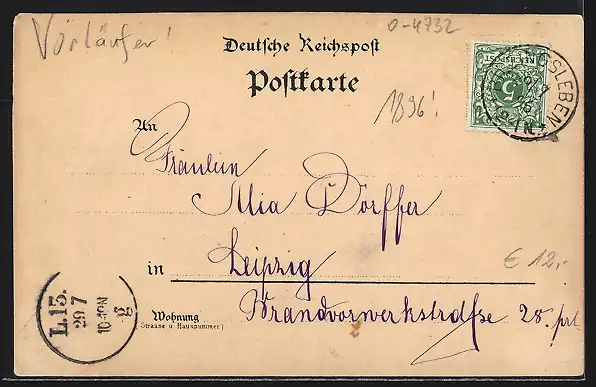 Vorläufer!
0-4732
Deutsche Reichspost
Postkarte
1896!
REICHSPOST
5
SLEBEN
An
Fräulein
Mia Dörffer
in Leipzig
Wohnung
(Strasse u Hausnummer)
Brandvorwerkstraße 28. prt
€ 12,-
L.13.
29 7
10
g